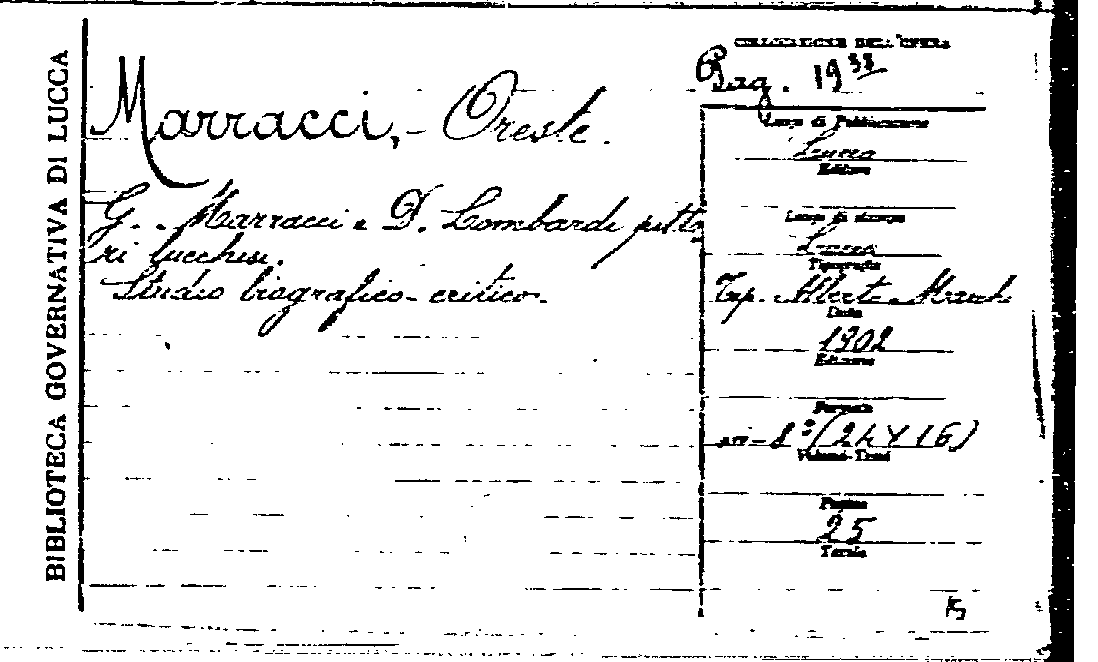 BIBLIOTECA GOVERNATIVA DI LUCCA
Marracci, - Oreste.
G. Marracci e D. Lombardi pitto
ri lucchesi.
Studio biografico-critico.
COLLOCAZIONE DELL'OPERA
Bag. 19
Luogo di Pubblicazione
Lucca
Editore
Luogo di stampa
Lucca
Tipografia
Tip. Alberto Marchi
Data
1902
Edizione
Formato
in-8° (24 X 16)
Volumi-Tomi
Pagine
25
Tavole